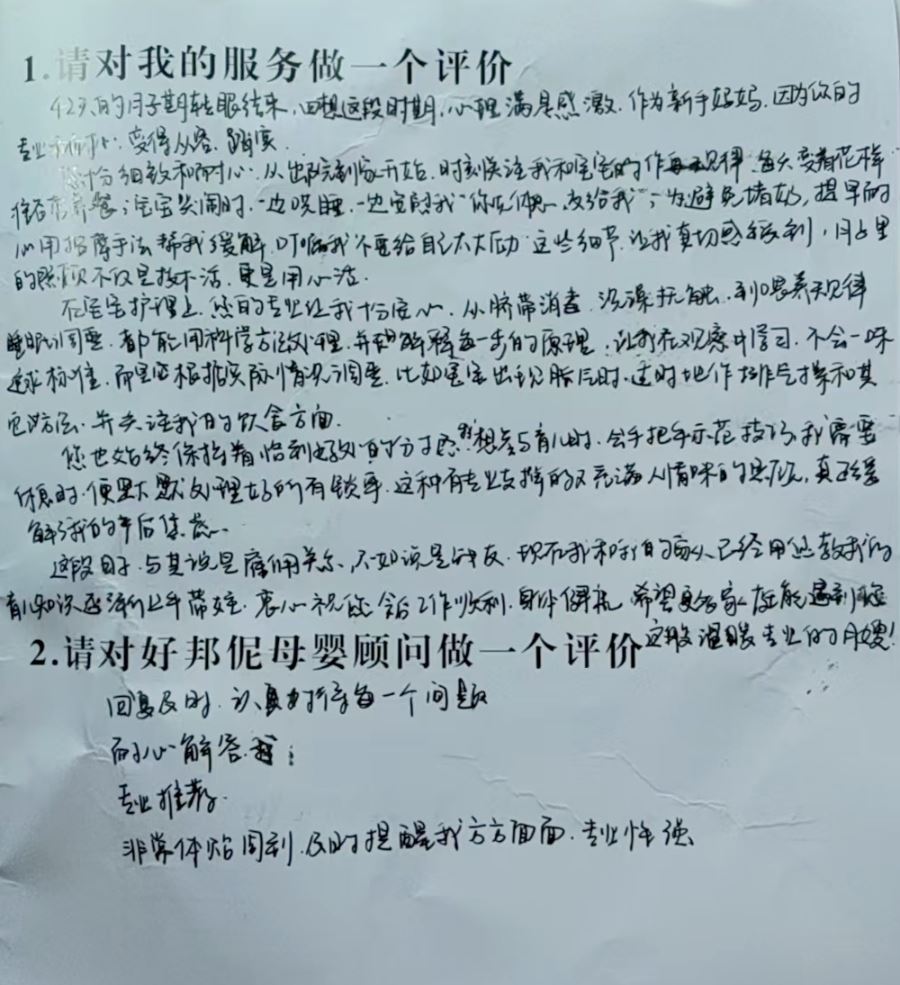 1.请对我的服务做一个评价
42天的月子期转眼结束,回想这段时期,心理满是感激.作为新手妈妈,因为你的
专业和耐心.变得从容、踏实.
您十份细致和耐心.从出院到家开始,时刻关注我和宝宝的作规律.每天变着花样
准备营养餐;宝宝哭闹时.一边哄睡.一边安慰我“你先休息,交给我”;为避免堵奶,提早的
心用按摩手法帮我缓解.叮嘱我不要给自己太大压力这些细节.让我真切感受到,月子里
的照顾不仅是技术活,更是用心活.
在宝宝护理上,您的专业让我十份安心.从脐带消毒,洗澡抚触,到喂养规律
睡眠调整.都能用科学方法处理.并耐心解释每一步的原理.让我在观察中学习.不会一味
追求标准.而是您根据实际情况调整.比如宝宝出现胀气时.适时地作排气操和其
它方法.并关注我们的饮食方面.
您也始终保持着恰到好处的分寸感.想参与育儿时.会手把手示范技巧,我需要
休息时.便默默处理好所有琐事.这种有专业支撑的又充满人情味的照顾,真正缓
解了我的产后焦虑.
这段时,与其说是雇佣关系,不如说是朋友.现在我和我们的家人已经用您教我们的
育儿知识逐渐上手带娃.衷心祝您今后工作顺利.身体健康.希望更多家庭能遇到像您
这般温暖专业的月嫂!
2.请对好邦伲母婴顾问做一个评价
回复及时.认真对待每一个问题
耐心解答.
专业推荐.
非常体贴周到.及时提醒我方方面面.专业性强